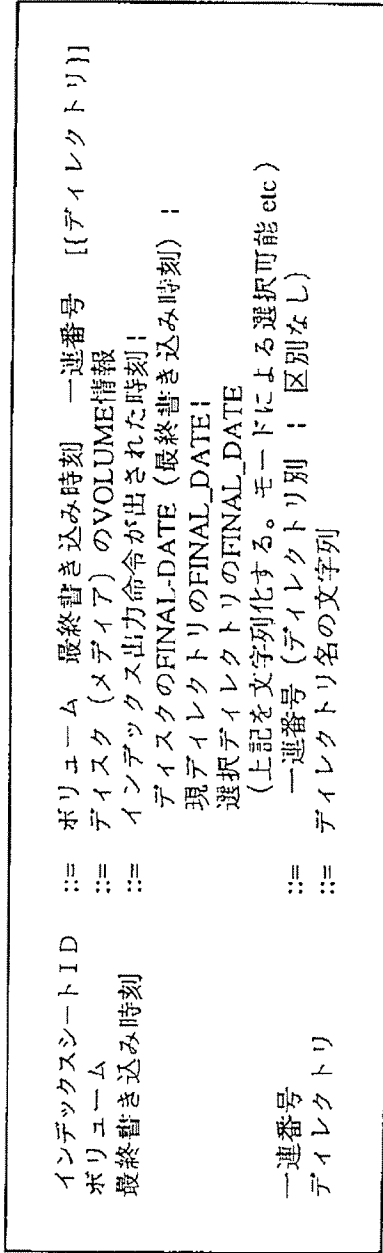 インデックスシートID ::= ボリューム 最終書き込み時刻 一連番号 [{ディレクトリ}]
ボリューム ::= ディスク(メディア)のVOLUME情報
最終書き込み時刻 ::= インデックス出力命令が出された時刻 |
ディスクのFINAL-DATE(最終書き込み時刻) |
現ディレクトリのFINAL_DATE |
選択ディレクトリのFINAL_DATE
(上記を文字列化する。モードによる選択可能 etc)
一連番号 ::= 一連番号(ディレクトリ別 | 区別なし)
ディレクトリ ::= ディレクトリ名の文字列